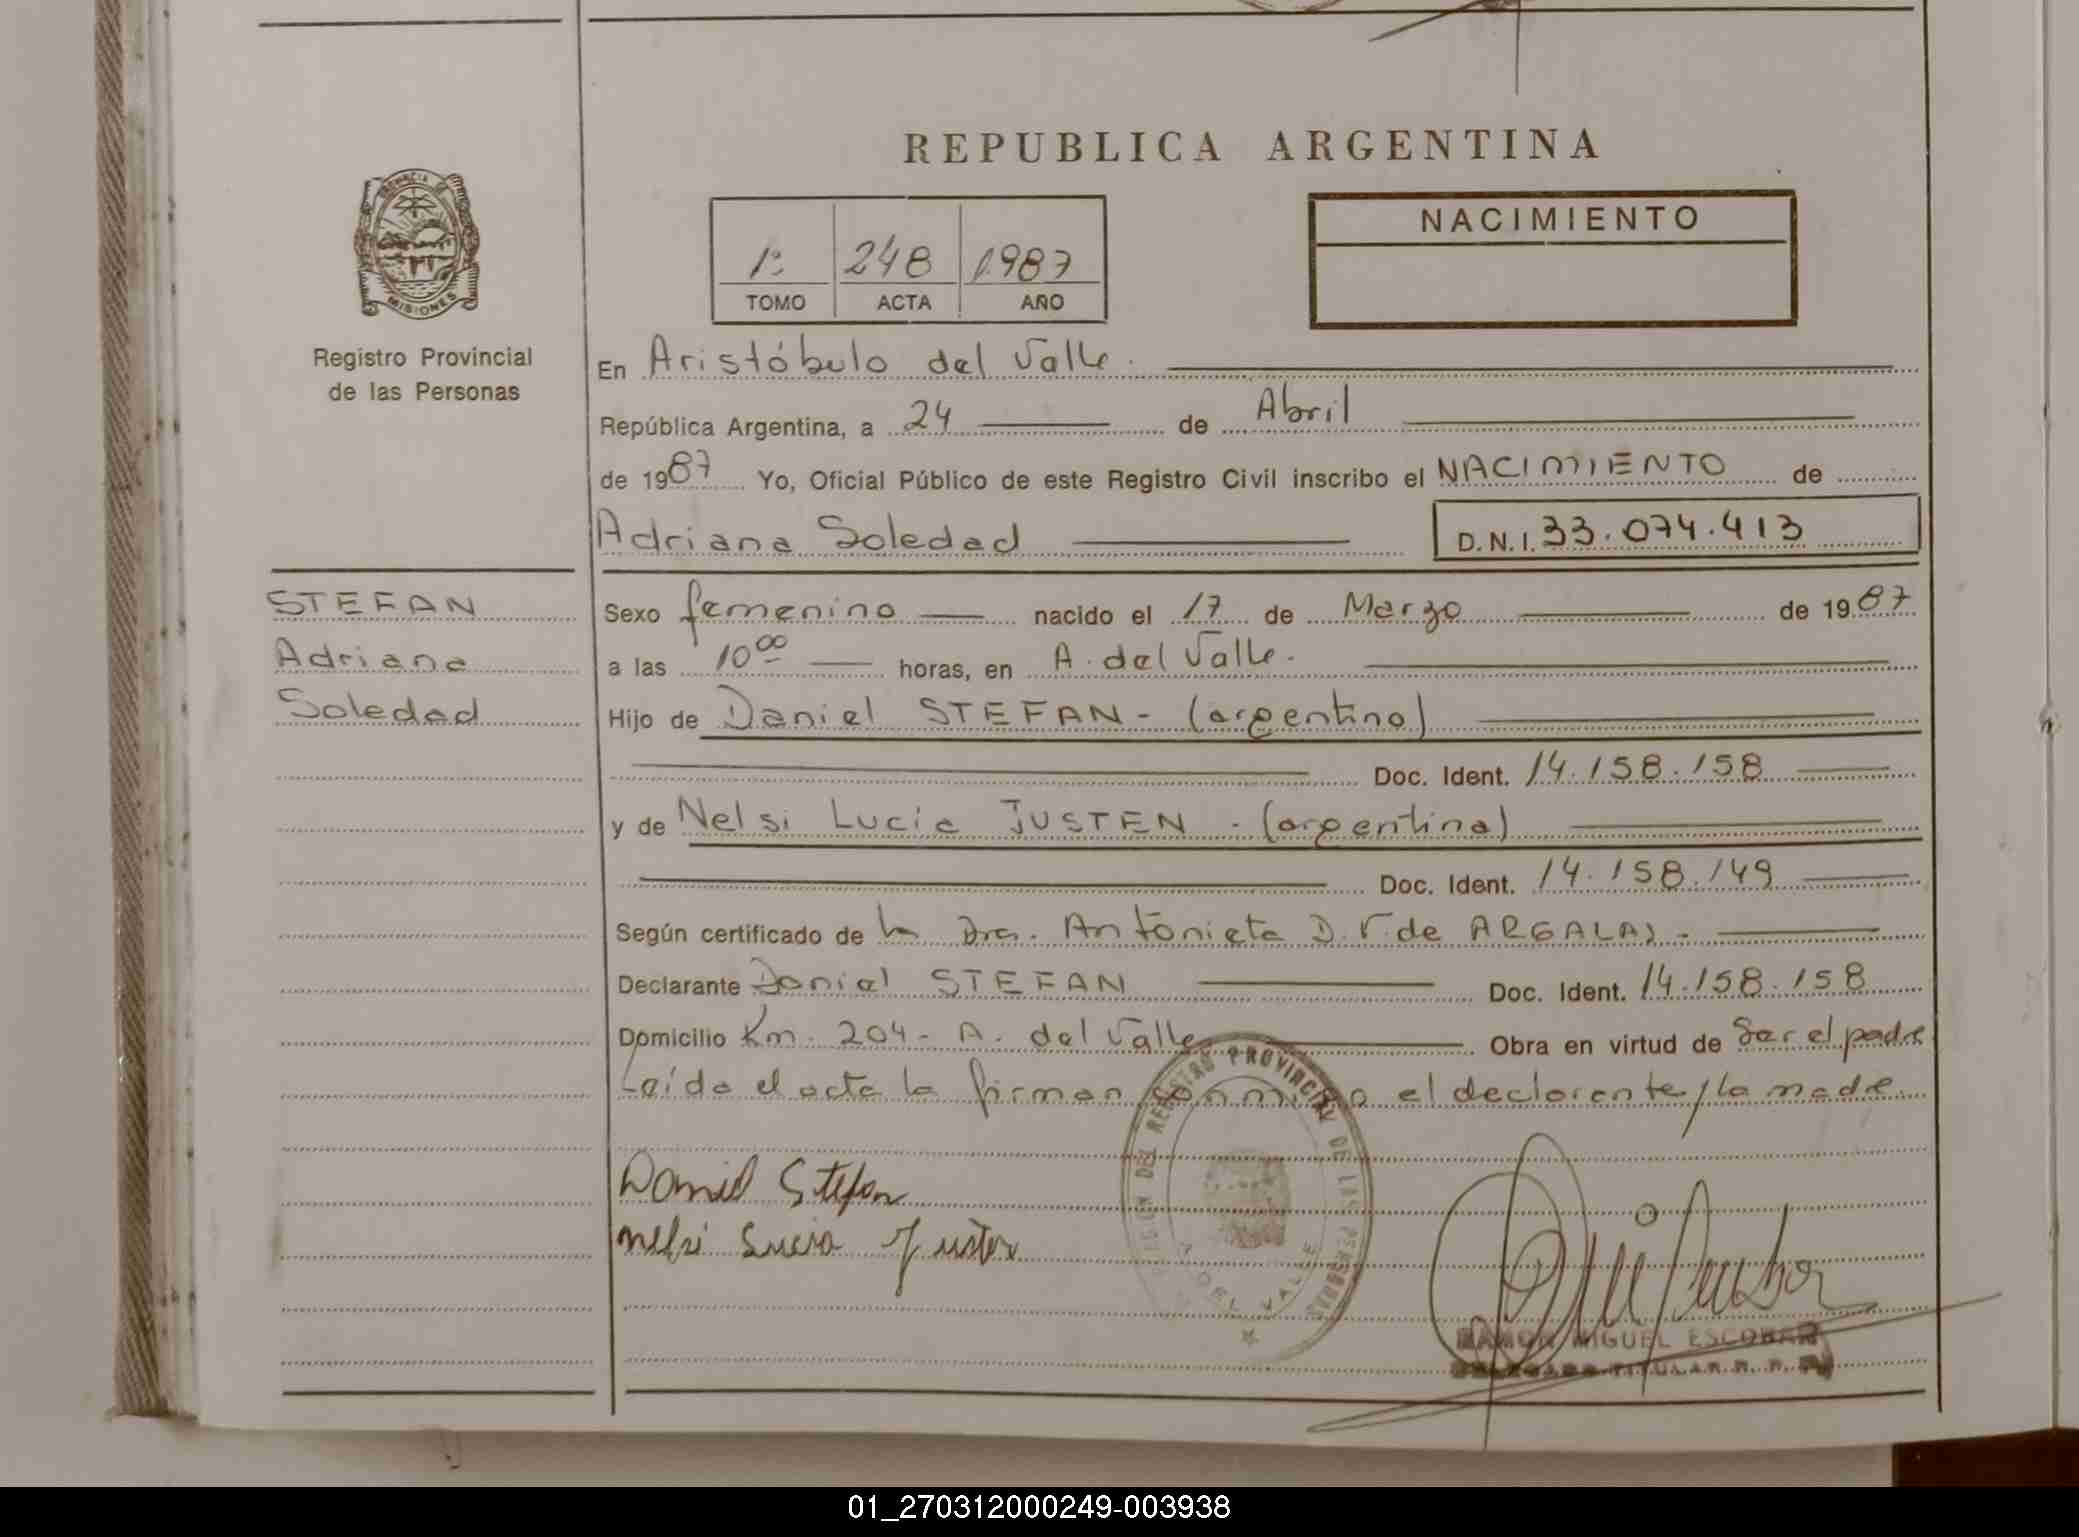 REPUBLICA ARGENTINA
PROVINCIA DE
MISIONES
Registro Provincial
de las Personas
NACIMIENTO
1º 248 1987
TOMO ACTA AÑO
En Aristóbulo del Valle.
República Argentina, a 24 de Abril
de 1987 Yo, Oficial Público de este Registro Civil inscribo el NACIMIENTO de
Adriana Soledad D.N.I. 33.074.413
STEFAN
Adriana
Soledad
Sexo femenino nacido el 17 de Marzo de 1987
a las 10 00 horas, en A. del Valle.
Hijo de Daniel STEFAN - (argentino)
Doc. Ident. 14.158.158
y de Nelsi Lucia JUSTEN - (argentina)
Doc. Ident. 14.158.149
Según certificado de la Dra. Antonieta D. V. de ARGALAS -
Declarante Daniel STEFAN Doc. Ident. 14.158.158
Domicilio Km. 204 - A. del Valle Obra en virtud de Ser el padre
Leída el acta la firman conmigo el declarante / la madre
Daniel Stefan
Nelsi Lucia Justen
DEL REGISTRO PROVINCIAL DE LAS PERSONAS
DEL VALLE
RAMON MIGUEL ESCOBAR
DELEGADO TITULAR R. P. P.
01_270312000249-003938